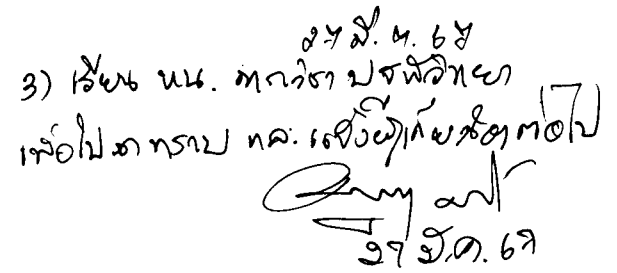 27 มี.ค. 67
3) เรียน หน. ภาควิชา ปฐพีวิทยา
เพื่อโปรดทราบ และ แจ้งผู้เกี่ยวข้องต่อไป
27 มี.ค. 67